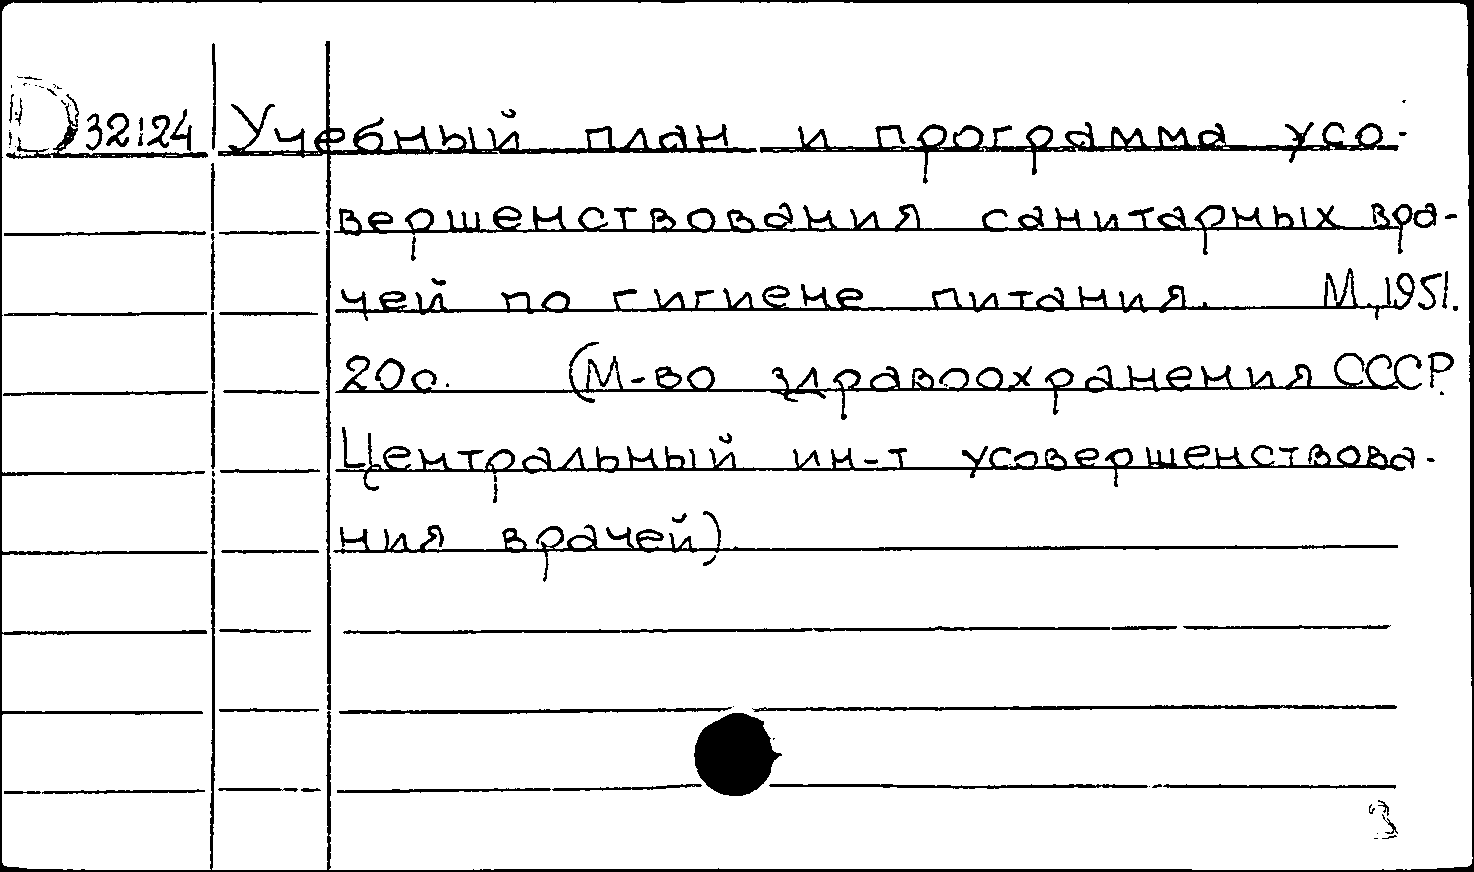 D 32124 Учебный план и программа усо-
вершенствования санитарных вра-
чей по гигиене питания. М., 1951.
20с. (М-во здравоохранения СССР.
Центральный ин-т усовершенствова-
ния врачей)
3